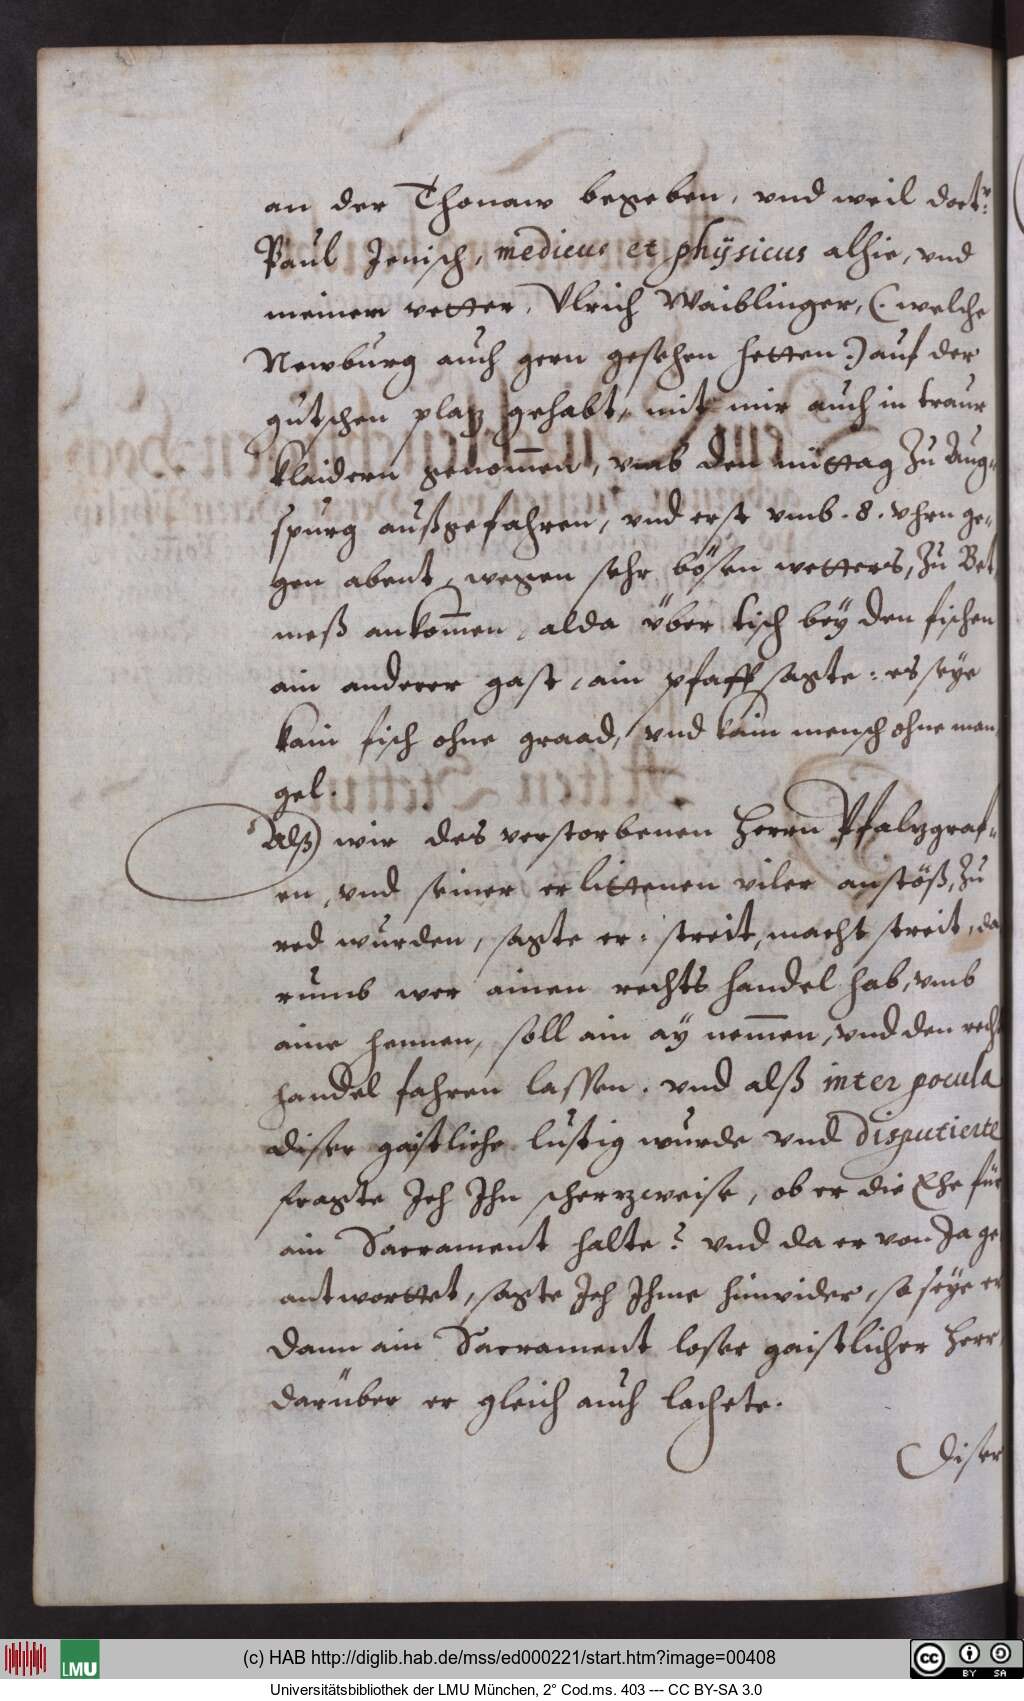 an der Thonaw begeben, vnd weil doctr:
Paul Jenisch, medicus et phÿsicus alhie, vnd
meinem vetter, Vlrich Waiblinger, (: welche
Newburg auch gern gesehen hetten :) auf der
gutschen plaz gehabt, mit mir auch in traur
klaidern genom̄en, vmb den mittag zu Aug¬
spurg außgefahren, vnd erst vmb .8. vhrn ge¬
gen abent, wegen sehr bösen wetters, zu Bet
meß ankom̄en, alda über tisch beÿ den fischen
ain anderer gast, ain pfaff sagte: es seÿe
kain fisch ohne graad, vnd kain mensch ohne man¬
gel.
Alß wir des verstorbenen Herrn Pfalzgraf¬
en, vnd seiner erlittenen viler anstöß, zu
red wurden, sagte er: streit, macht streit, da
rumb wer ainen rechts handel hab, vmb
aine hennen, soll ain aÿ nem̄en, vnd den recht
handel fahren lassen. vnd alß inter pocula
diser gaistliche lustig wurde vnd disputierte
fragte Ich Ihn scherzweise, ob er die Ehe für
ain Sacrament halte? vnd da er von Ja ge
antworttet, sagte Ich Ihme hinwider, so seÿe er
dann ain Sacrament loser gaistlicher Herr,
darüber er gleich auch lachete.
Diser
(c) HAB http://diglib.hab.de/mss/ed000221/start.htm?image=00408
LMU
cc BY SA
Universitätsbibliothek der LMU München, 2° Cod.ms. 403 --- CC BY-SA 3.0